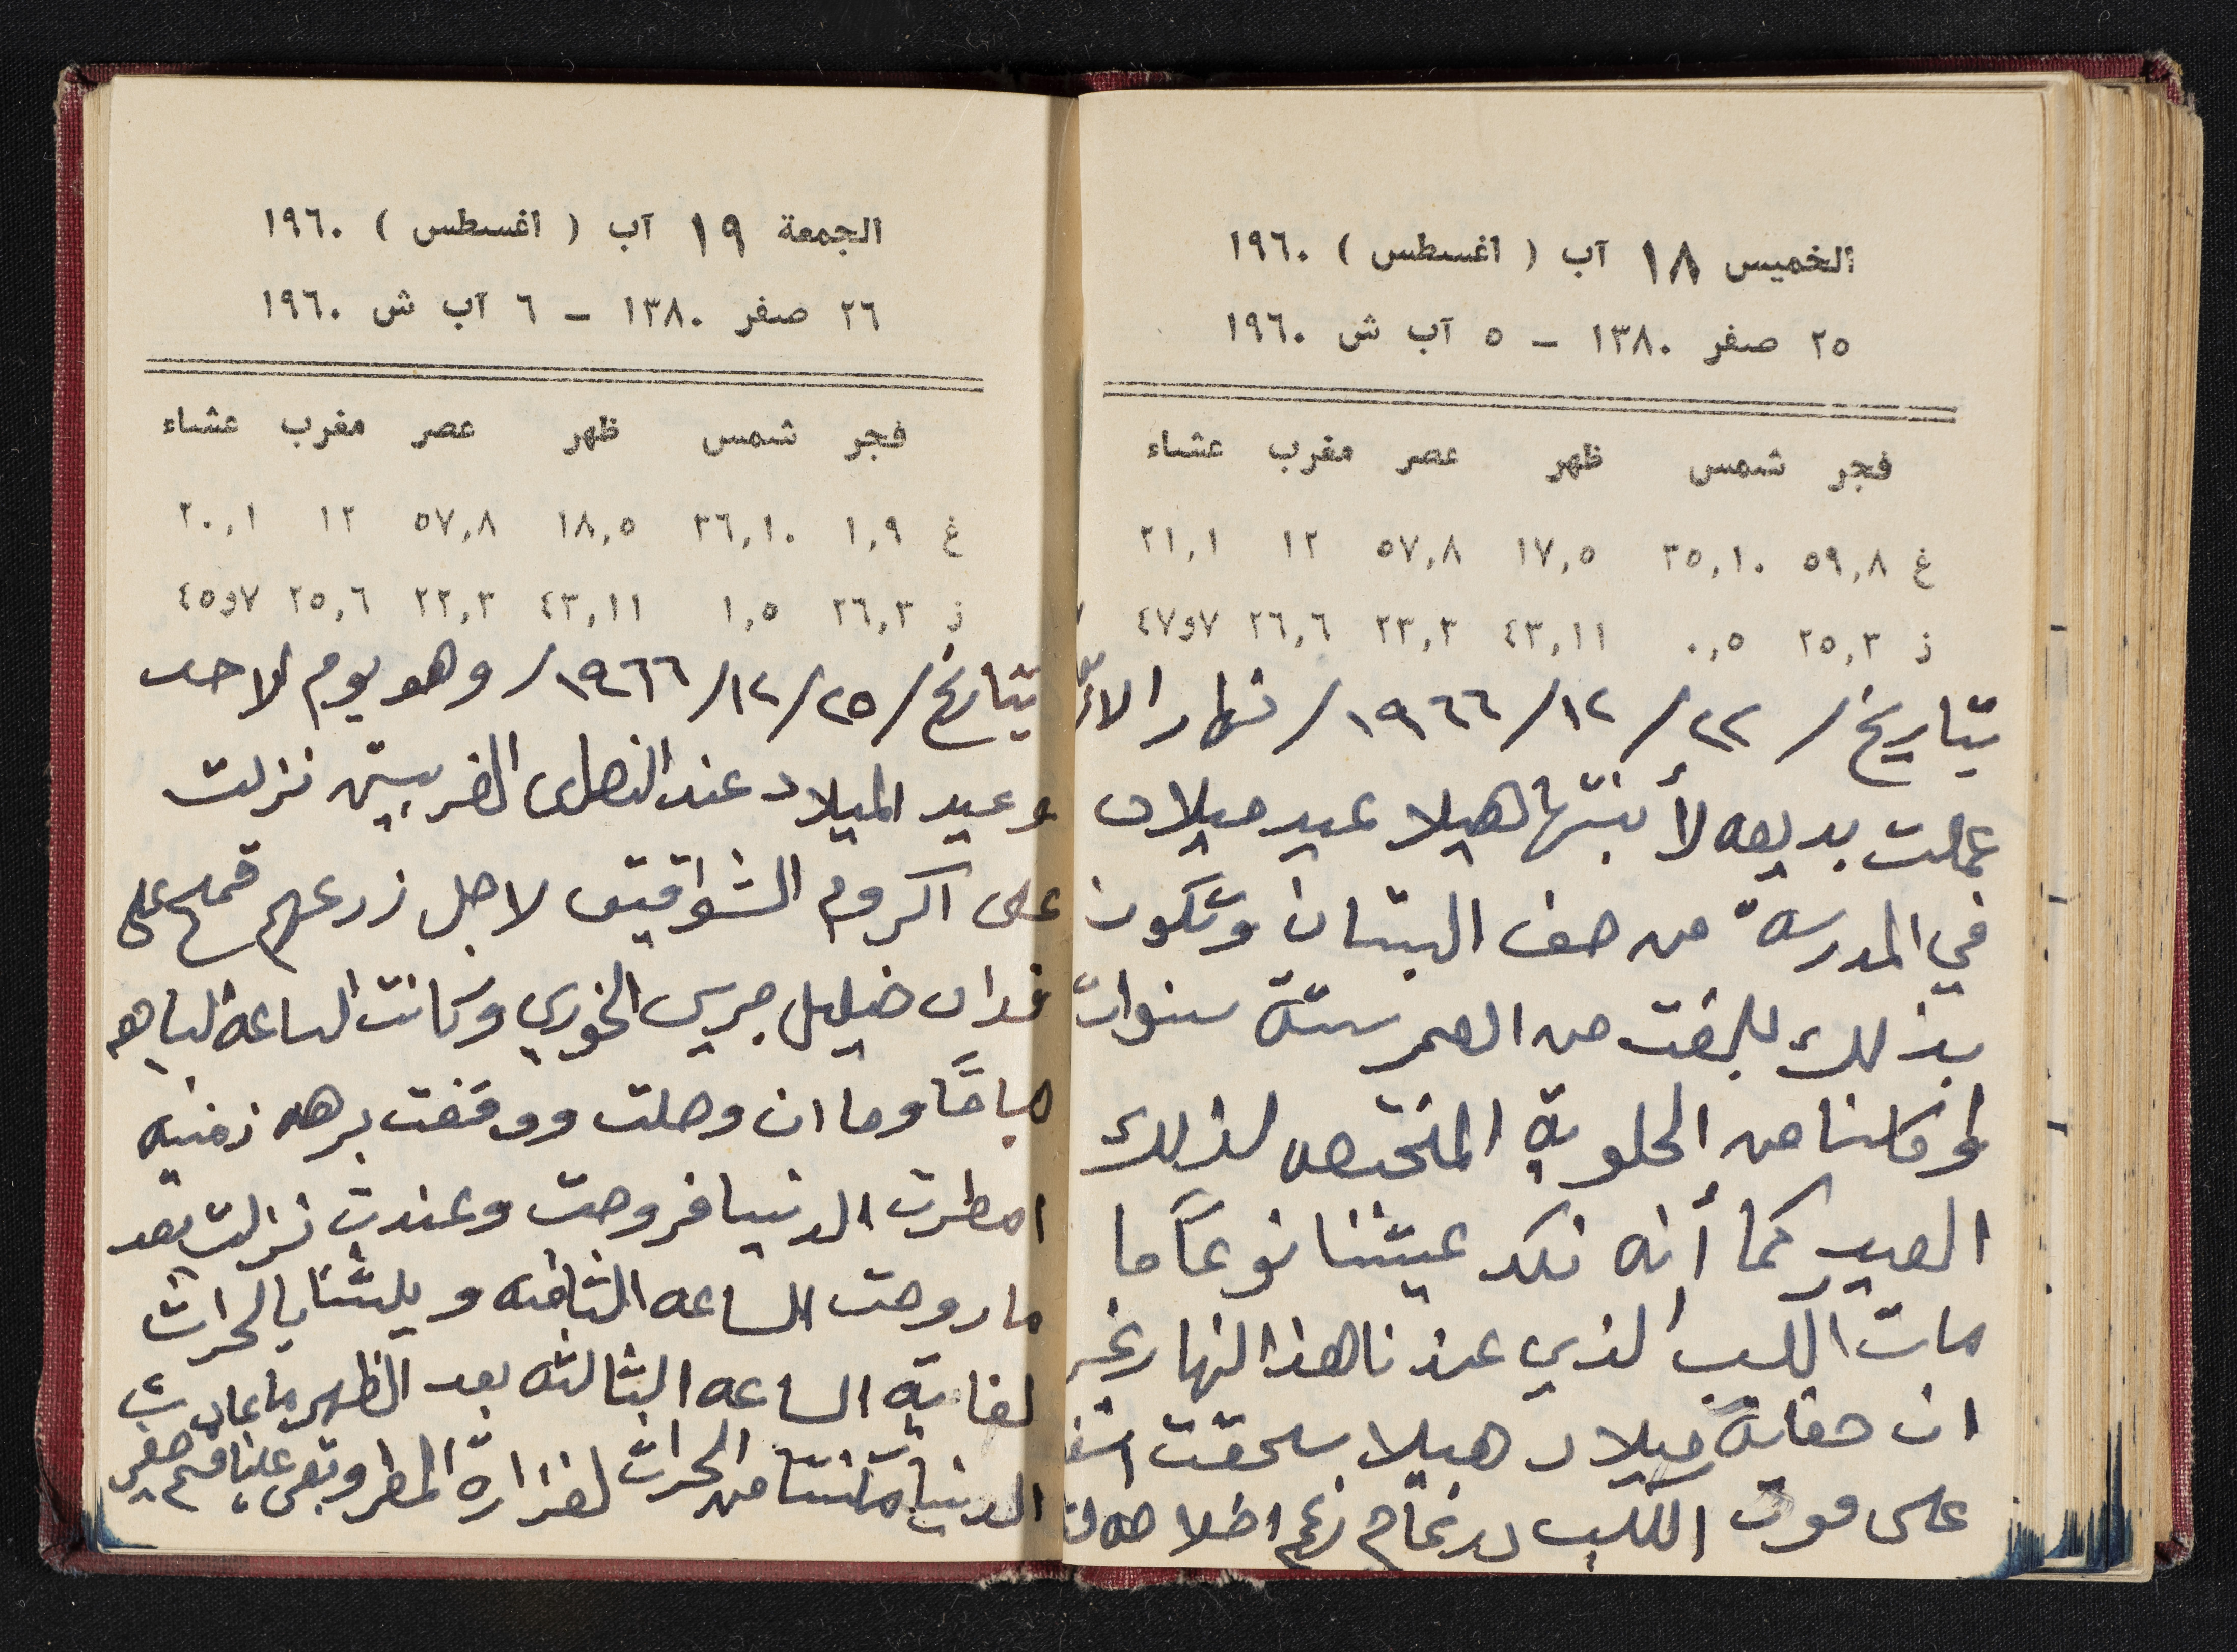 الخميس ١٨ آب ( اغسطس ) ١٩٦٠
٢٥ صفر ١٣٨٠ – ٥ آب ش ١٩٦٠
فجر شمس ظهر عصر مغرب عشاء
غ ٥٩,٨ ٣٥,١٠ ١٧,٥ ٥٧,٨ ١٢ ٢١,١
ز ٢٥,٣ ٠,٥ ٤٣,١١ ٢٣,٣ ٢٦,٦ ٧و٤٧
بتاريخ / ٢٢ / ١٢ / ١٩٦٦ / نهار
عملت بديعه لأبنتها هيلا عيد ميلاد
في المدرسة من صف البستان وتكون
بذلك بلغت من العمر ستة سنوات
وأكلنا من الحلوية المختصه لذلك
العيد كما أنه نكد عيشنا نوعًا ما
مات الكلب الذي عندنا هذا النهار غير
ان حفلة ميلاد هيلا سحقت
على موت الكلب
الجمعة ١٩ آب ( اغسطس ) ١٩٦٠
٢٦ صفر ١٣٨٠ – ٦ آب ش ١٩٦٠
فجر شمس ظهر عصر مغرب عشاء
غ ١,٩ ٣٦,١٠ ١٨,٥ ٥٧,٨ ١٢ ٢٠,١
ز ٢٦,٣ ١,٥ ٤٣,١١ ٢٢,٣ ٢٥,٦ ٧و٤٥
بتاريخ / ٢٥ / ١٢ / ١٩٦٦ / وهو يوم الاحد
وعيد الميلاد عند النصارى الغربيين نزلت
على اكروم الشواقيق لاجل زرعهم قمح على
فدان خليل جريس الخوري وكانت الساعة السابعه
صباحًا وما ان وصلت ووقفت برهه زمنيه
امطرت الدنيا فروحت وعندت نزلت بعد
ما روحت الساعه الثامنه وبلشنا بالحراث
لغاية الساعه الثالثه بعد الظهر ما عادت
الدنيا مكنتنا من الحراث لغزارة المطر وبقى علينا قسم صغير